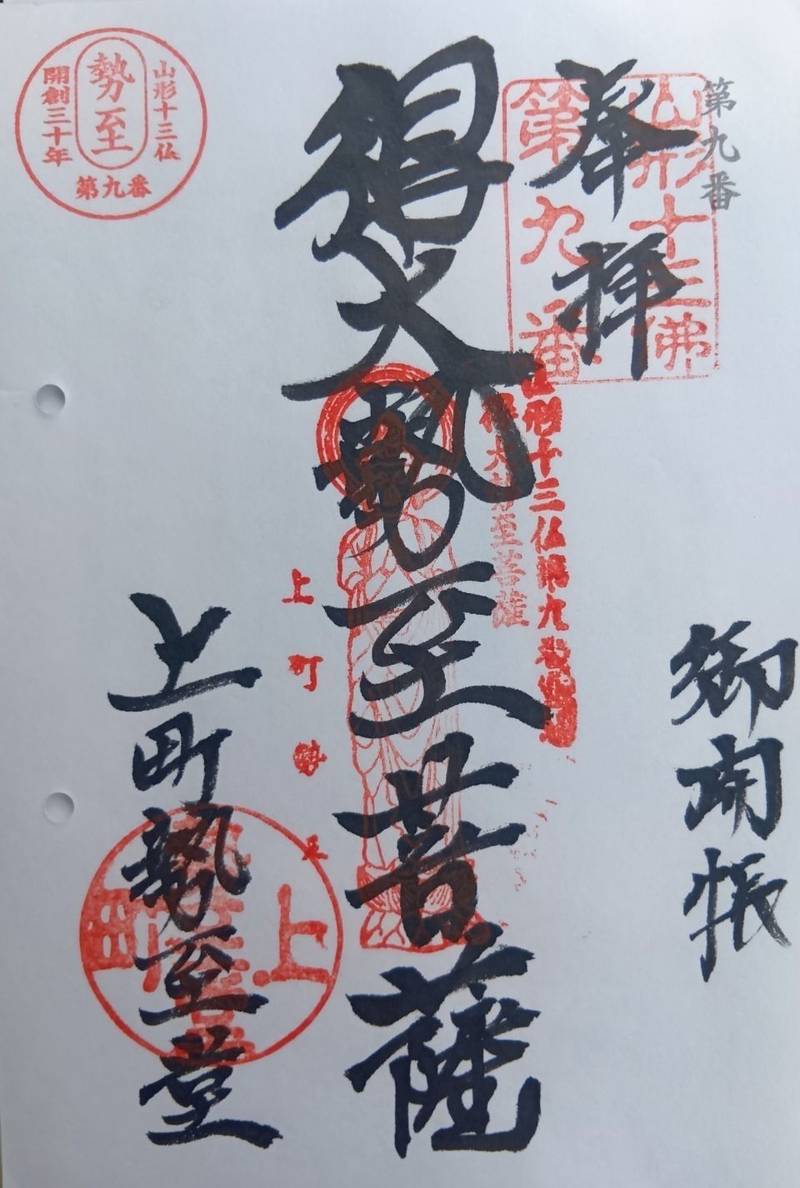 第九番
奉拝
御開帳
山形十三佛
第九番
山形十三仏第九番
得大勢至菩薩
得大勢至菩薩
上町勢至
上町勢至堂
上町
山形十三仏
勢至
開創三十年
第九番